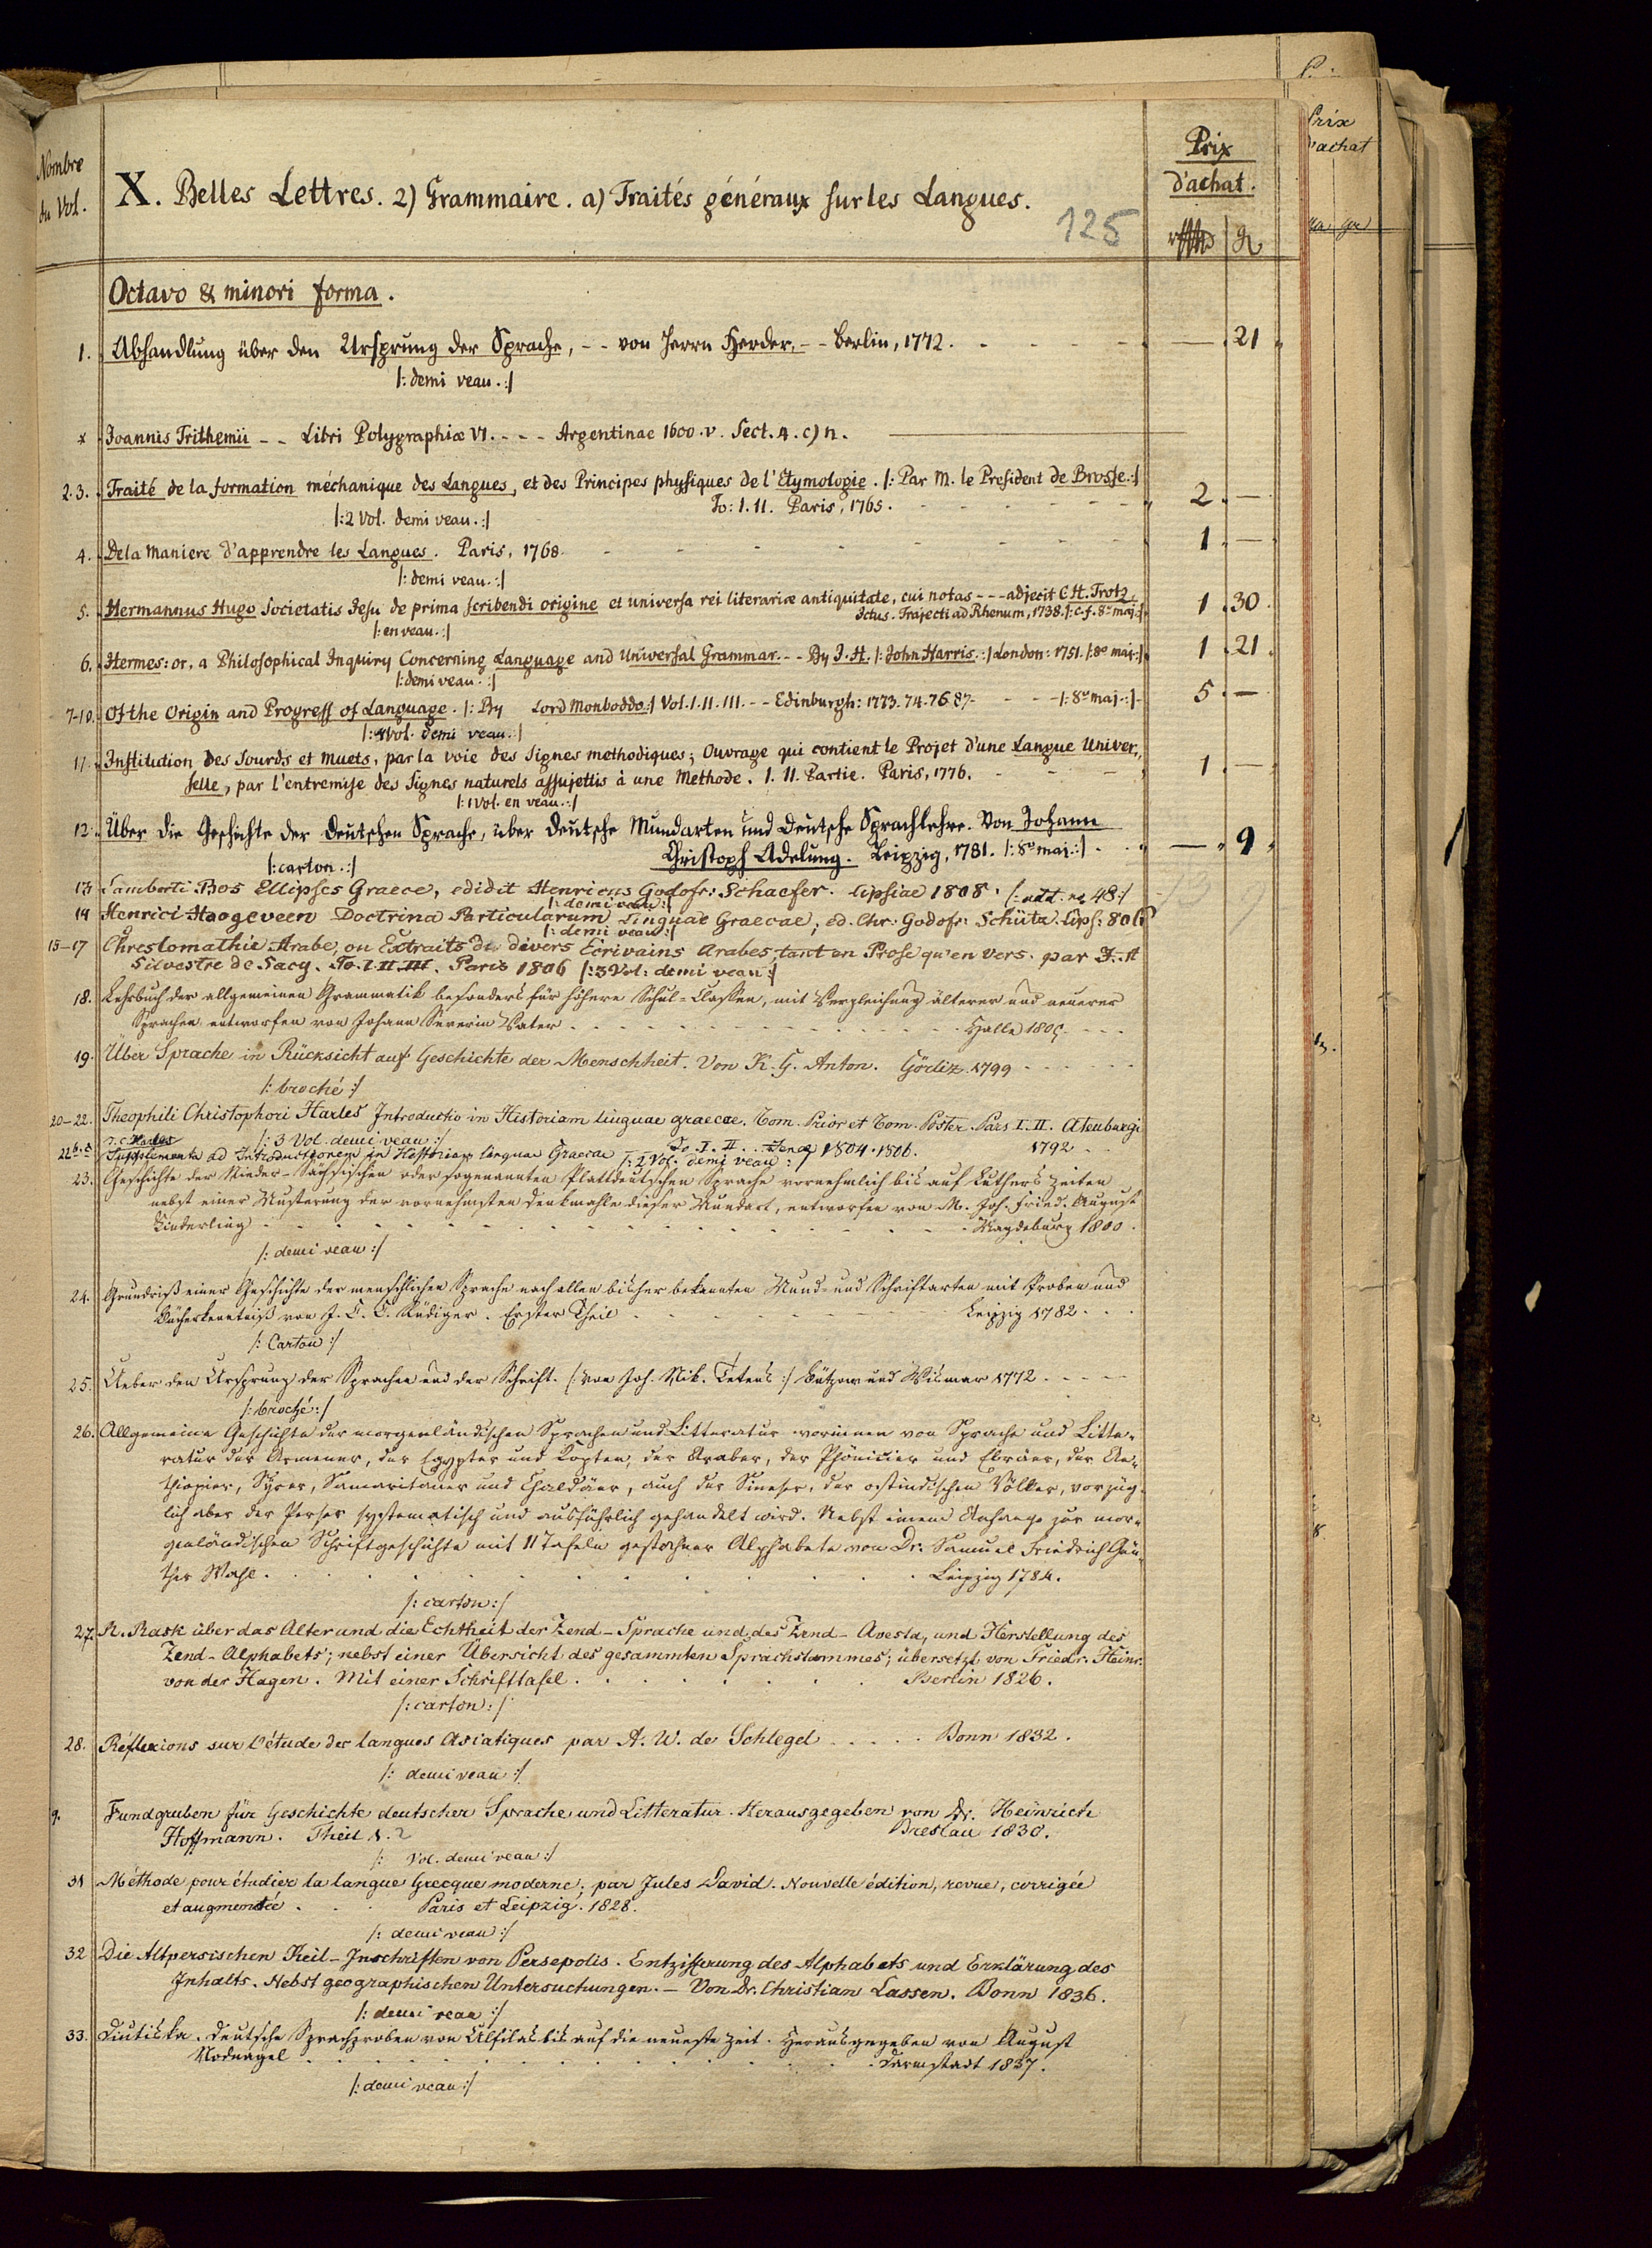 Nombre
du Vol.
X. Belles Lettres. 2) Grammaire. a) Traités généraux sur les Langues.
125
Prix
d'achat.
Octavo & minori forma.
1. Abhandlung über den Ursprung der Sprache, -- von Herrn Herder, -- Berlin, 1772. — 21
|: demi veau. :|
* Joannis Trithemii -- Libri Polygraphiæ VI. --- Argentinae 1600. v. Sect. 4. c) n.
2.3. Traité de la formation méchanique des Langues, et des Principes physiques de l'Etymologie. |: Par M. le President de Brosse. :|
To: I. II. Paris, 1765. 2 —
|: 2 Vol. demi veau. :|
4. De la Maniere d'apprendre les Langues. Paris, 1768. 1 —
|: demi veau. :|
5. Hermannus Hugo Societatis Jesu de prima scribendi origine et universa rei literariæ antiquitate, cui notas --- adjecit C. H. Trotz,
Ictus. Trajecti ad Rhenum, 1738. |: c. f. 8° maj. :| 1 30
|: en veau. :|
6. Hermes: or, a Philosophical Inquiry Concerning Language and Universal Grammar. -- By J. H. |: John Harris. :| London: 1751. |: 8° maj. :| 1 21
|: demi veau. :|
7-10. Of the Origin and Progress of Language. |: By Lord Monboddo :| Vol. I. II. III. -- Edinburgh: 1773. 74. 76. 87. |: 8° maj. :| 5 —
|: 4 Vol. demi veau. :|
11. Institution des Sourds et Muets, par la voie des Signes methodiques; Ouvrage qui contient le Projet d'une Langue Univer-
selle, par l'entremise des Signes naturels assujettis à une Methode. I. II. Partie. Paris, 1776. 1 —
|: 1 Vol. en veau. :|
12. Über die Geschichte der deutschen Sprache, über deutsche Mundarten und deutsche Sprachlehre. Von Johann
Christoph Adelung. Leipzig, 1781. |: 8° maj. :| — 9
|: carton. :|
13 Lamberti Bos Ellipses Graece, edidit Henricus Godofr: Schaefer. Lipsiae 1808. |: add. no 48 :|
|: demi veau :|
14 Henrici Hoogeveen Doctrina Particularum Linguae Graecae, ed. Chr: Godofr: Schütz. Lips: 806
|: demi veau :|
15-17 Chrestomathie Arabe, ou Extraits de divers Ecrivains Arabes, tant en Prose qu'en vers. par J. A
Silvestre de Sacy. To. I. II. III. Paris 1806 |: 3 Vol: demi veau :|
18. Lehrbuch der allgemeinen Grammatik besonders für höhere Schul-Classen, mit Vergleichung älterer und neuerer
Sprachen entworfen von Johann Severin Vater Halle 1805.
19. Über Sprache in Rücksicht auf Geschichte der Menschheit. Von K. G. Anton. Görliz 1799
|: broché :|
20-22. Theophili Christophori Harles Introductio in Historiam linguae graecae. Tom. Prior et Tom. Poster. Pars I. II. Altenburgi
1792
|: 3 Vol. demi veau :|
T. C. Harles
Supplementa ad Introductionem in Historiam linguae Graecae To. I. II. Jenae 1804. 1806.
|: 2 Vol. demi veau :|
23. Geschichte der Nieder-Sächsischen oder sogenannten Plattdeutschen Sprache vornehmlich bis auf Luthers Zeiten
nebst einer Musterung der vornehmsten Denkmahle dieser Mundart, entworfen von M. Joh. Fried. August
Kinderling Magdeburg 1800.
|: demi veau :|
24. Grundriß einer Geschichte der menschlichen Sprache nach allen bisher bekannten Mund- und Schriftarten mit Proben und
Bücherkenntniß von J. C. C. Rüdiger. Erster Theil Leipzig 1782
|: Carton :|
25. Ueber den Ursprung der Sprachen und der Schrift. |: von Joh. Nik. Tetens :| Bützow und Wismar 1772
|: broché :|
26. Allgemeine Geschichte der morgenländischen Sprachen und Litteratur worinnen von Sprache und Litte-
ratur der Armener, der Egypter und Kopten, der Araber, der Phönicier und Ebräer, der Ae-
thiopier, Syrer, Samaritaner und Chaldäer, auch der Sineser, der ostindischen Völker, vorzüg-
lich aber der Perser systematisch und ausführlich gehandelt wird. Nebst einem Anhange zur mor-
genländischen Schriftgeschichte mit 11 Tafeln gestochner Alphabete von Dr. Samuel Friedrich Gün-
ther Wahl. Leipzig 1784.
|: carton :|
27. R. Rask über das Alter und die Echtheit der Zend-Sprache und des Zend-Avesta, und Herstellung des
Zend-Alphabets; nebst einer Übersicht des gesammten Sprachstammes; übersetzt von Friedr. Heinr.
von der Hagen. Mit einer Schrifttafel. Berlin 1826.
|: carton :|
28. Réflexions sur l'étude des langues Asiatiques par A. W. de Schlegel Bonn 1832.
|: demi veau :|
9. Fundgruben für Geschichte deutscher Sprache und Litteratur. Herausgegeben von Dr. Heinrich
Hoffmann. Theil 1. 2 Breslau 1830.
|: Vol. demi veau :|
31 Méthode pour étudier la langue Grecque moderne; par Jules David. Nouvelle édition, revue, corrigée
et augmentée. Paris et Leipzig. 1828.
|: demi veau :|
32 Die Altpersischen Keil-Inschriften von Persepolis. Entzifferung des Alphabets und Erklärung des
Inhalts. Nebst geographischen Untersuchungen. — Von Dr. Christian Lassen. Bonn 1836.
|: demi veau :|
33. Diutiska. Deutsche Sprachproben von Ulfilas bis auf die neueste Zeit. Herausgegeben von August
Nodnagel Darmstadt 1837.
|: demi veau :|
Prix
d'achat